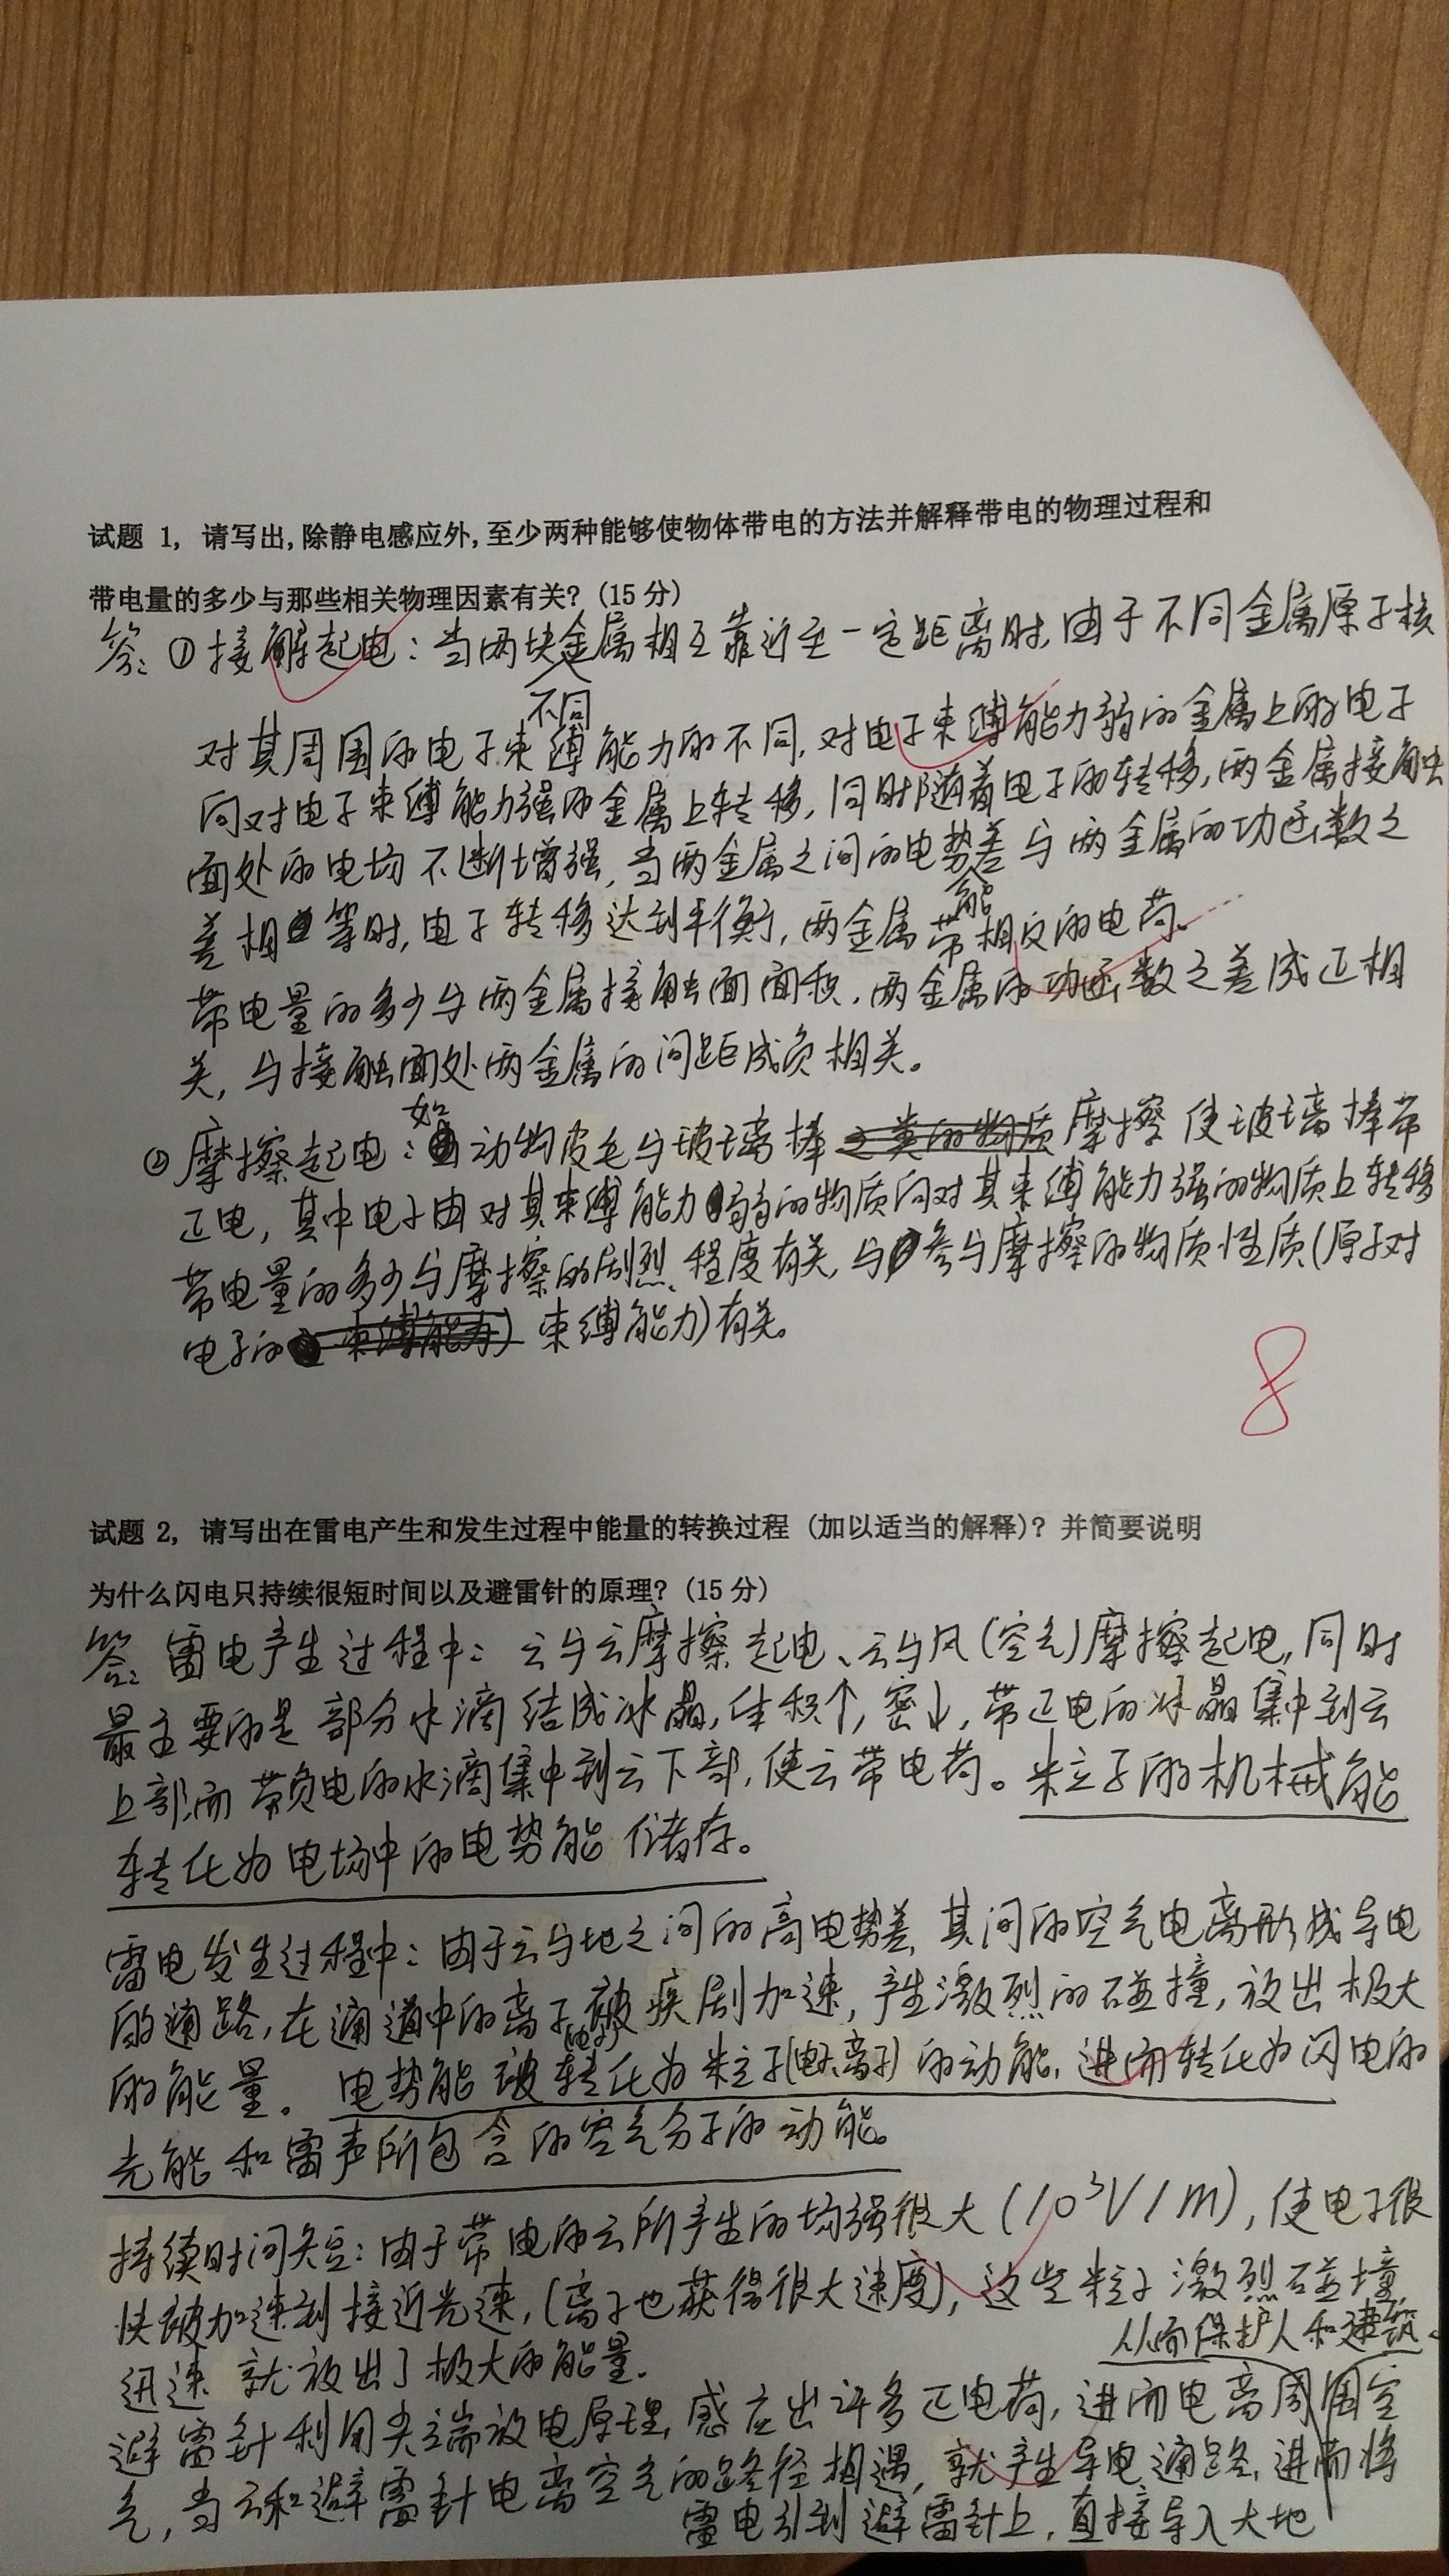 试题 1, 请写出,除静电感应外,至少两种能够使物体带电的方法并解释带电的物理过程和
带电量的多少与那些相关物理因素有关? (15 分)
答: ①接触起电: 当两块金属相互靠近至一定距离时, 由于不同金属原子核
不同
对其周围的电子束缚能力的不同, 对电子束缚能力弱的金属上的电子
向对电子束缚能力强的金属上转移, 同时随着电子的转移, 两金属接触
面处的电场不断增强, 当两金属之间的电势差与两金属的功函数之
能
差相等时, 电子转移达到平衡, 两金属带相反的电荷。
带电量的多少与两金属接触面面积, 两金属的功函数之差成正相
关, 与接触面处两金属的间距成负相关。
如
②摩擦起电: 动物皮毛与玻璃棒之类的物质摩擦使玻璃棒带
正电, 其中电子由对其束缚能力弱的物质向对其束缚能力强的物质上转移
带电量的多少与摩擦的剧烈程度有关, 与参与摩擦的物质性质(原子对
电子的束缚能力) 束缚能力)有关。
8
试题 2, 请写出在雷电产生和发生过程中能量的转换过程 (加以适当的解释)? 并简要说明
为什么闪电只持续很短时间以及避雷针的原理? (15 分)
答: 雷电产生过程中: 云与云摩擦起电、云与风(空气)摩擦起电, 同时
最主要的是部分水滴结成冰晶, 体积↑, 密↓, 带正电的冰晶集中到云
上部,而带负电的水滴集中到云下部, 使云带电荷。粒子的机械能
转化为电场中的电势能储存。
雷电发生过程中: 由于云与地之间的高电势差, 其间的空气电离形成导电
的通路, 在通道中的离子被疾剧加速, 产生激烈的碰撞, 放出极大
(电子)
的能量。电势能被转化为粒子(电子、离子)的动能, 进而转化为闪电的
光能和雷声所包含的空气分子的动能。
持续时间短: 由于带电的云所产生的场强很大 (10³V/m), 使电子很
快被加速到接近光速, (离子也获得很大速度), 这些粒子激烈碰撞,
从而保护人和建筑。
迅速就放出了极大的能量.
避雷针利用尖端放电原理, 感应出许多正电荷, 进而电离周围空
气, 当云和避雷针电离空气的路径相遇, 就产生导电通路, 进而将
雷电引到避雷针上, 直接导入大地